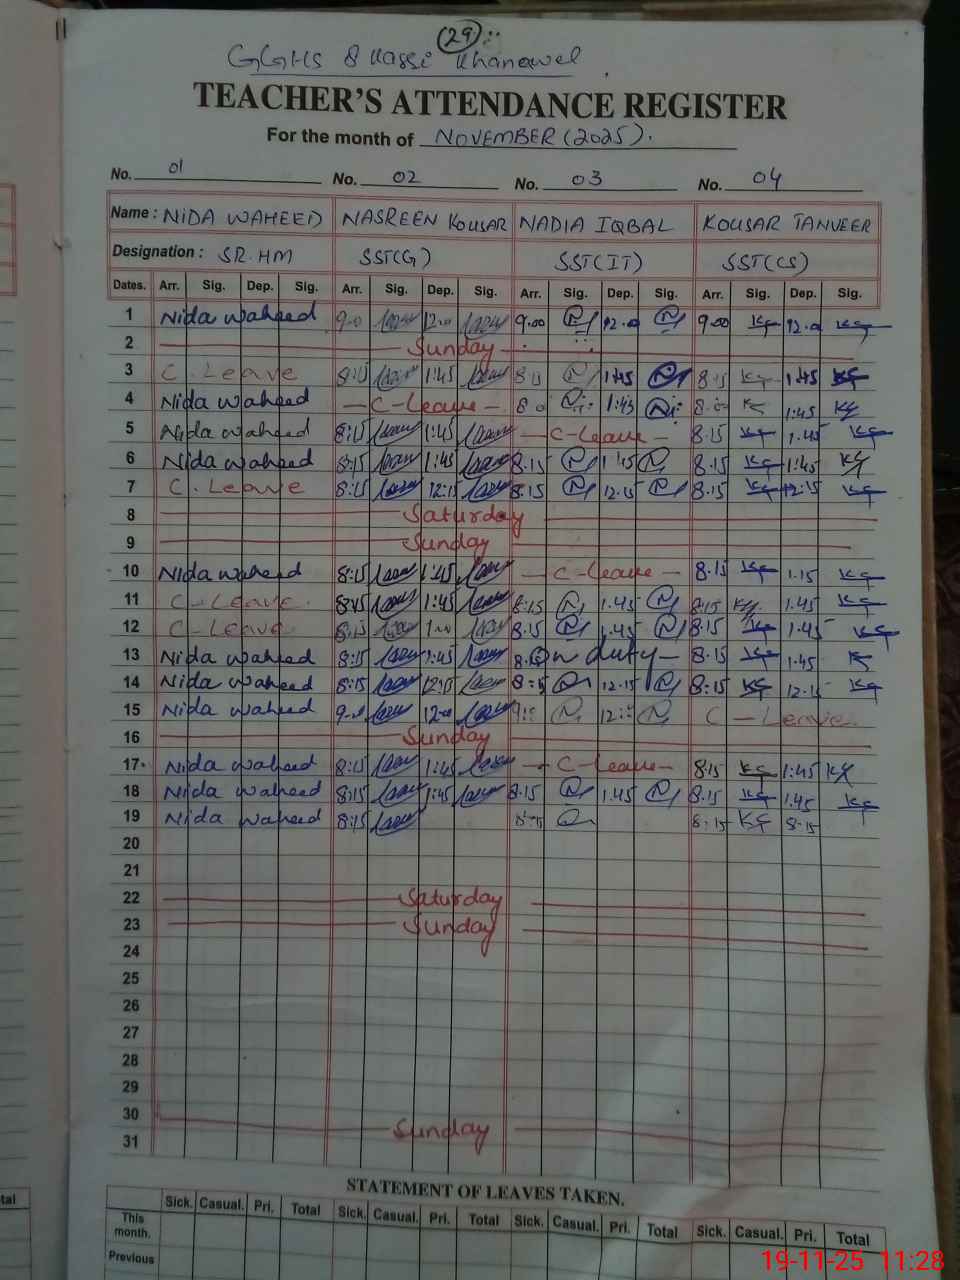 (29)
GGHS 8 Kassi Khanewal
TEACHER'S ATTENDANCE REGISTER
For the month of NOVEMBER (2025).
No. 01 No. 02 No. 03 No. 04
Name : NIDA WAHEED NASREEN KOUSAR NADIA IQBAL KOUSAR TANVEER
Designation : SR. HM SST(G) SST(IT) SST(CS)
Dates. Arr. Sig. Dep. Sig. Arr. Sig. Dep. Sig. Arr. Sig. Dep. Sig. Arr. Sig. Dep. Sig.
1 Nida Waheed 9.00 9.00
2 Sunday
3 C. Leave 8:15 1:45 8:15 1:45 8:15 1:45
4 Nida Waheed C-Leave 1:45 1:45
5 Nida Waheed 8:15 1:45 C-Leave 8.15 1.45
6 Nida Waheed 8:15 1:45 8.15 1:45 8.15 1:45
7 C. Leave 8:15 12:15 8:15 12.15 8.15 12:15
8 Saturday
9 Sunday
10 Nida Waheed 8:15 1:45 C-Leave 8.15 1.15
11 C-Leave 8:45 1:45 8:15 1.45 8:15 1.45
12 C-Leave 8:15 1.00 8.15 1.45 8.15 1.45
13 Nida Waheed 8:15 1:45 On duty 8.15 1.45
14 Nida Waheed 8:15 12:15 8:15 12.15 8:15 12.15
15 Nida Waheed 12:00 C-Leave
16 Sunday
17 Nida Waheed 8:15 1:45 C-Leave 8:15 1:45
18 Nida Waheed 8:15 1:45 8.15 1.45 8.15 1.45
19 Nida Waheed 8:15 8:15 8:15
20
21
22 Saturday
23 Sunday
24
25
26
27
28
29
30 Sunday
31
STATEMENT OF LEAVES TAKEN.
Sick. Casual. Pri. Total Sick. Casual. Pri. Total Sick. Casual. Pri. Total Sick. Casual. Pri. Total
This month.
Previous
tal
19-11-25 11:28